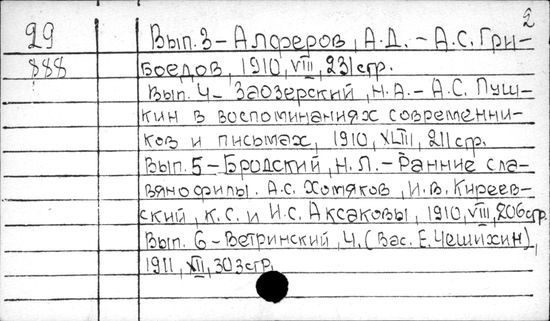 2
29 Вып. 3 – Алферов, А.Д. – А.С. Гри-
888 боедов, 1910, VIII, 231 стр.
Вып. 4 – Заозерский, Н.А. – А.С. Пуш-
кин в воспоминаниях современни-
ков и письмах, 1910, XLIII, 211 стр.
Вып. 5 – Бродский, Н.Л. – Ранние сла-
вянофилы. А.С. Хомяков, И.В. Киреев-
ский, К.С. и И.С. Аксаковы, 1910, VIII, 206 стр.
Вып. 6 – Ветринский, Ч. (Вас. Е. Чешихин),
1911, VII, 303 стр.